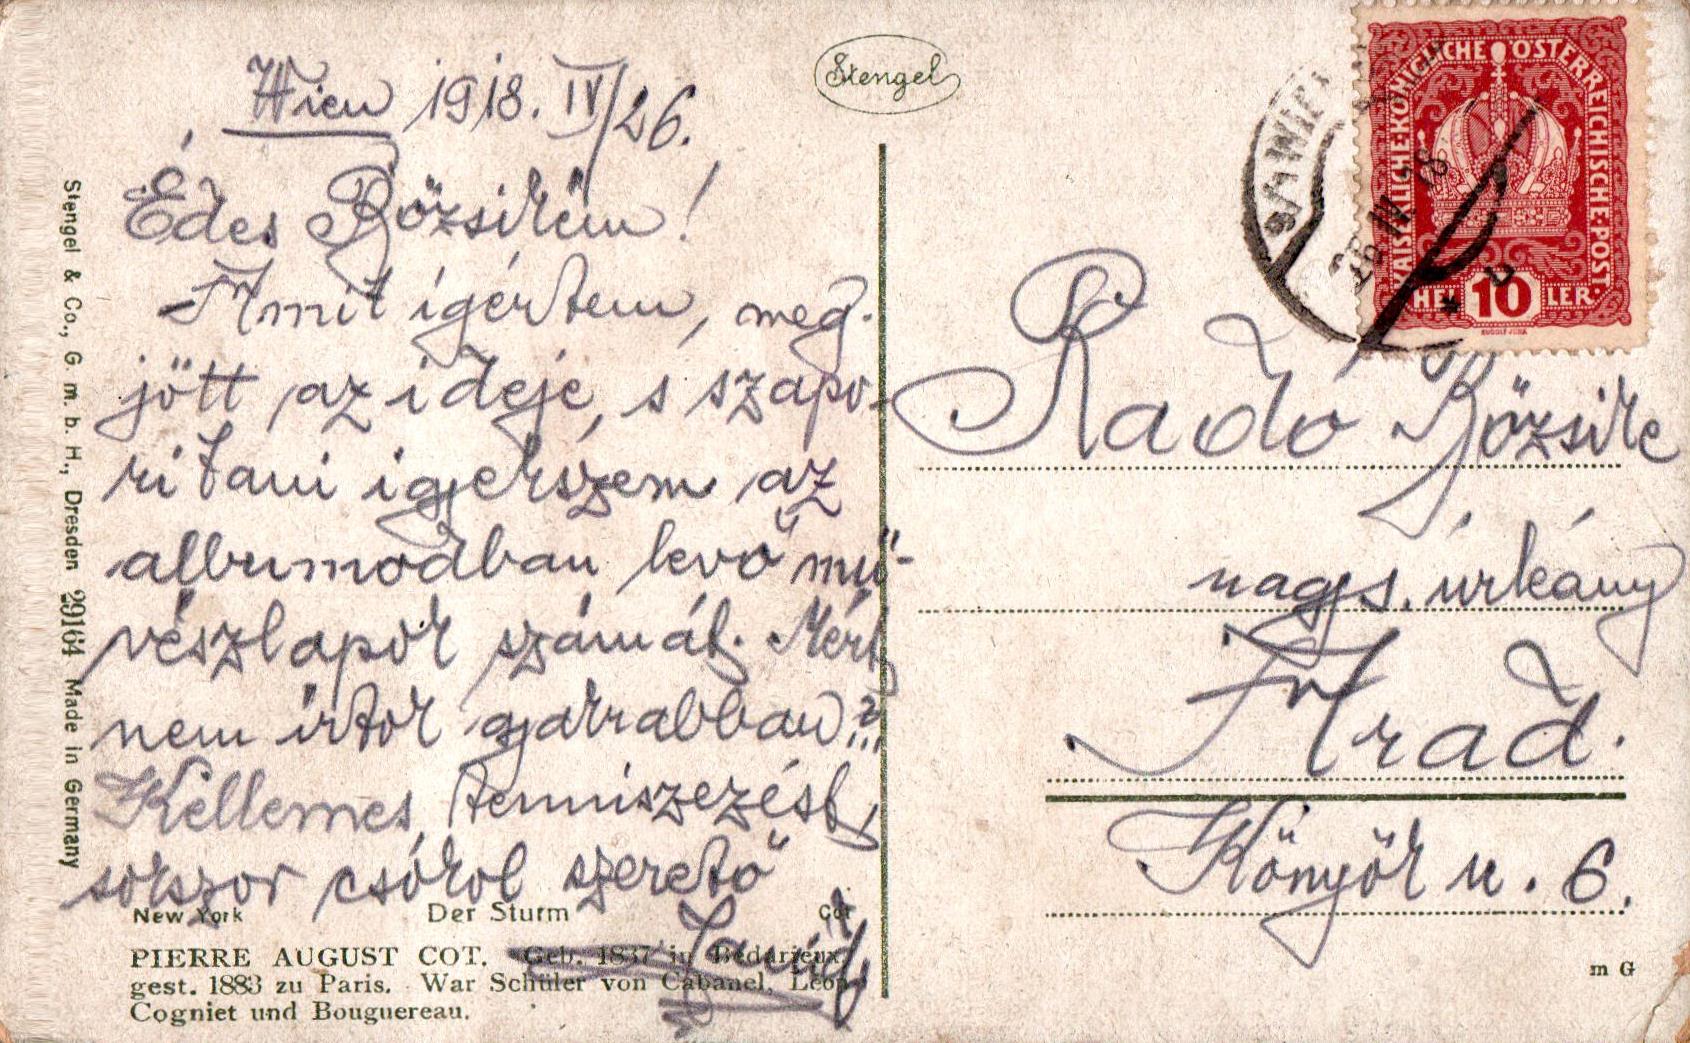 Stengel
Wien 1918. IV/26.
Édes Bözsikém!
Amit igértem, meg-
jött az ideje, s szapo-
ritani igyekszem az
albumodban levő mű-
vészlapok számát. Mért
nem irtok gyakrabban?!!
Kellemes tenniszezést,
sokszor csókol szerető
New York Der Sturm Cot
PIERRE AUGUST COT. Geb. 1837 in Bédarieux,
gest. 1883 zu Paris. War Schüler von Cabanel, Léon
Cogniet und Bouguereau.
Stengel & Co., G. m. b. H., Dresden 29164 Made in Germany
KAISERLICHE·KÖNIGLICHE ÖSTERREICHISCHE·POST·
HEL 10 LER·
26 IV 18
Radó Bözsike
nags. úrleány
Arad.
Könyök u. 6.
m G